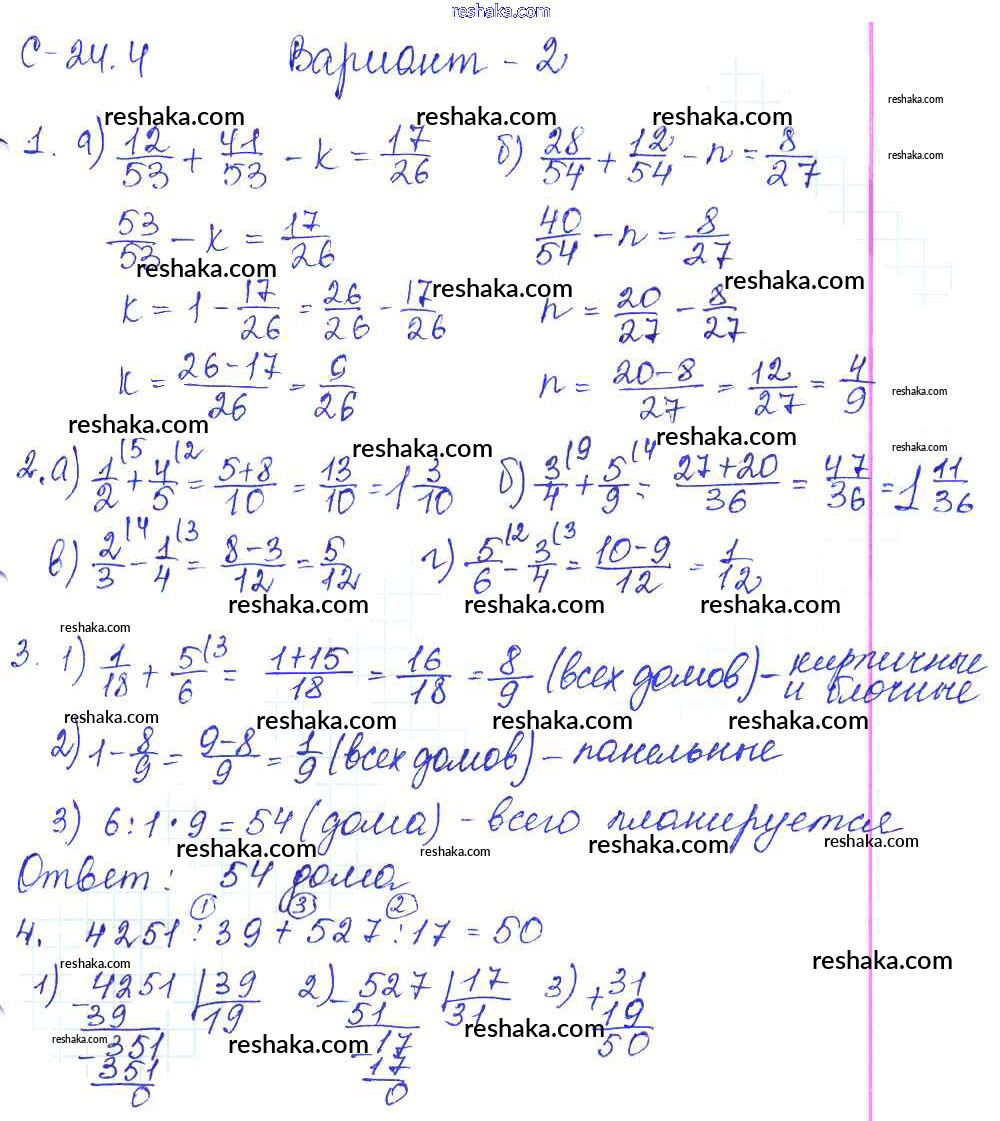 reshaka.com
С-24.4 Вариант - 2
reshaka.com reshaka.com reshaka.com reshaka.com
1. а) 12/53 + 41/53 - k = 17/26 б) 28/54 + 12/54 - n = 8/27 reshaka.com
53/53 - k = 17/26 40/54 - n = 8/27
reshaka.com reshaka.com reshaka.com
k = 1 - 17/26 = 26/26 - 17/26 n = 20/27 - 8/27
k = 26-17/26 = 9/26 n = 20-8/27 = 12/27 = 4/9 reshaka.com
reshaka.com reshaka.com reshaka.com reshaka.com
2. а) 1/2 (5 + 4/5 (2 = 5+8/10 = 13/10 = 1 3/10 б) 3/4 (9 + 5/9 (4 = 27+20/36 = 47/36 = 1 11/36
в) 2/3 (4 - 1/4 (3 = 8-3/12 = 5/12 г) 5/6 (2 - 3/4 (3 = 10-9/12 = 1/12
reshaka.com reshaka.com reshaka.com
reshaka.com
3. 1) 1/18 + 5/6 (3 = 1+15/18 = 16/18 = 8/9 (всех домов) - кирпичные
и блочные
reshaka.com reshaka.com reshaka.com
2) 1 - 8/9 = 9-8/9 = 1/9 (всех домов) - панельные
3) 6 : 1 · 9 = 54 (дома) - всего планируется
reshaka.com reshaka.com reshaka.com reshaka.com
Ответ: 54 дома
1 3 2
4. 4251 : 39 + 527 : 17 = 50
reshaka.com reshaka.com
1) 4251 | 39 2) 527 | 17 3) + 31
- 39 19 - 51 31 19
reshaka.com reshaka.com reshaka.com
- 351 - 17 50
351 17
0 0